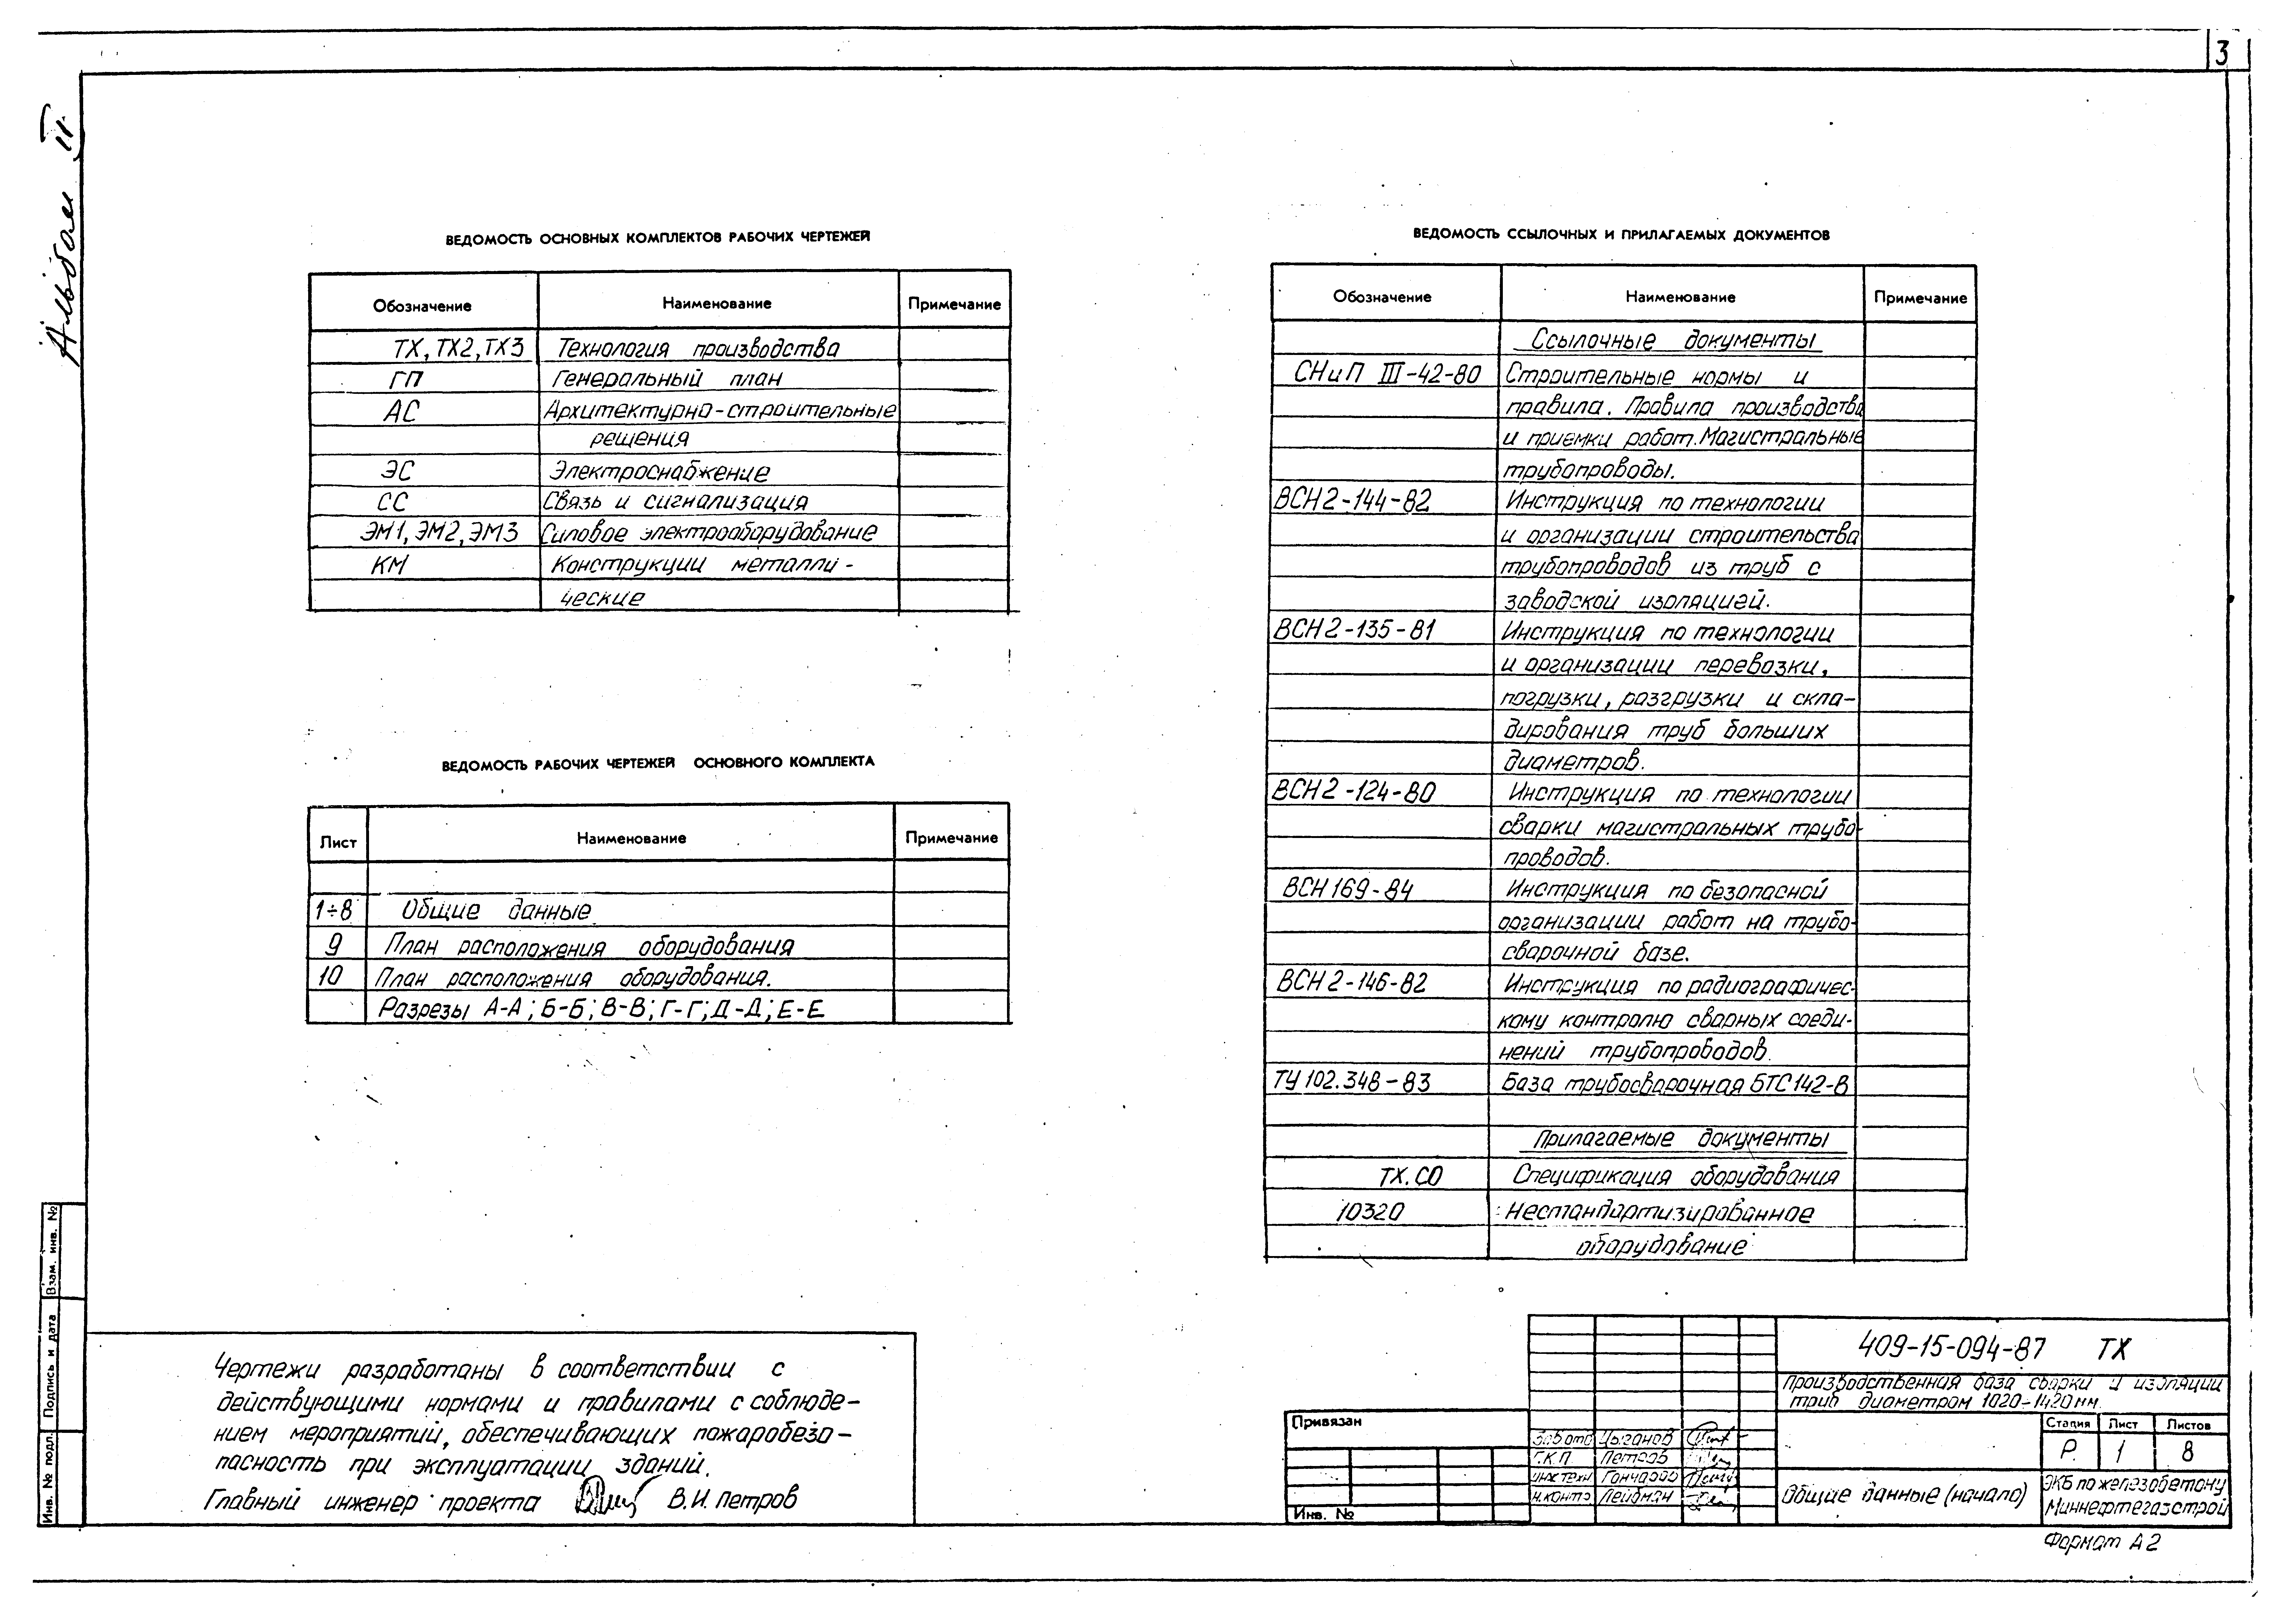 3
Альбом II
ВЕДОМОСТЬ ОСНОВНЫХ КОМПЛЕКТОВ РАБОЧИХ ЧЕРТЕЖЕЙ
Обозначение Наименование Примечание
ТХ, ТХ2, ТХ3 Технология производства
ГП Генеральный план
АС Архитектурно-строительные
решения
ЭС Электроснабжение
СС Связь и сигнализация
ЭМ1, ЭМ2, ЭМ3 Силовое электрооборудование
КМ Конструкции металли-
ческие
ВЕДОМОСТЬ РАБОЧИХ ЧЕРТЕЖЕЙ ОСНОВНОГО КОМПЛЕКТА
Лист Наименование Примечание
1÷8 Общие данные
9 План расположения оборудования
10 План расположения оборудования.
Разрезы А-А; Б-Б; В-В; Г-Г; Д-Д; Е-Е
ВЕДОМОСТЬ ССЫЛОЧНЫХ И ПРИЛАГАЕМЫХ ДОКУМЕНТОВ
Обозначение Наименование Примечание
Ссылочные документы
СНиП III-42-80 Строительные нормы и
правила. Правила производства
и приемки работ. Магистральные
трубопроводы.
ВСН 2-144-82 Инструкция по технологии
и организации строительства
трубопроводов из труб с
заводской изоляцией.
ВСН 2-135-81 Инструкция по технологии
и организации перевозки,
погрузки, разгрузки и скла-
дирования труб больших
диаметров.
ВСН 2-124-80 Инструкция по технологии
сварки магистральных трубо-
проводов.
ВСН 169-84 Инструкция по безопасной
организации работ на трубо-
сварочной базе.
ВСН 2-146-82 Инструкция по радиографичес-
кому контролю сварных соеди-
нений трубопроводов.
ТУ 102.348-83 База трубосварочная БТС 142-В
Прилагаемые документы
ТХ.СО Спецификация оборудования
10320 Нестандартизированное
оборудование
Чертежи разработаны в соответствии с
действующими нормами и правилами с соблюде-
нием мероприятий, обеспечивающих пожаробезо-
пасность при эксплуатации зданий.
Главный инженер проекта В.И. Петров
Взам. инв. №
Подпись и дата
Инв. № подл.
Привязан
Инв. №
Цыганов
Г.К.П. Петров
инж техн Гончаров
н.контр Лейдман
409-15-094-87 ТХ
Производственная база сварки и изоляции
труб диаметром 1020-1420 мм.
Стадия Лист Листов
Р 1 8
Общие данные (начало)
ЭКБ по железобетону
Миннефтегазстрой
Формат А2